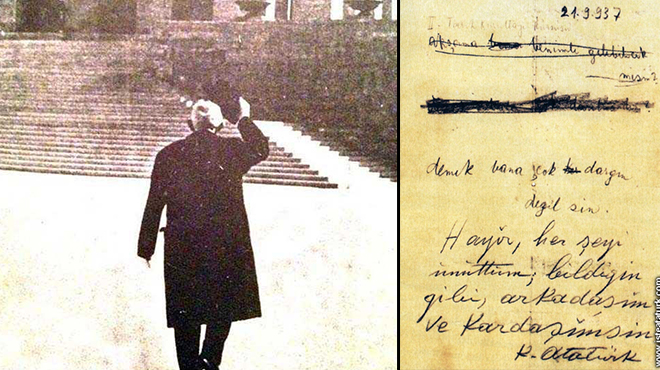 21.9.937
II.
akşama benimle gelebilecek
misin?
demek bana çok dargın
değil sin.
Hayır, her şeyi
unuttum, bildiğin
gibi, arkadaşım
ve Kardaşımsın
K. Atatürk
www.isteataturk.com